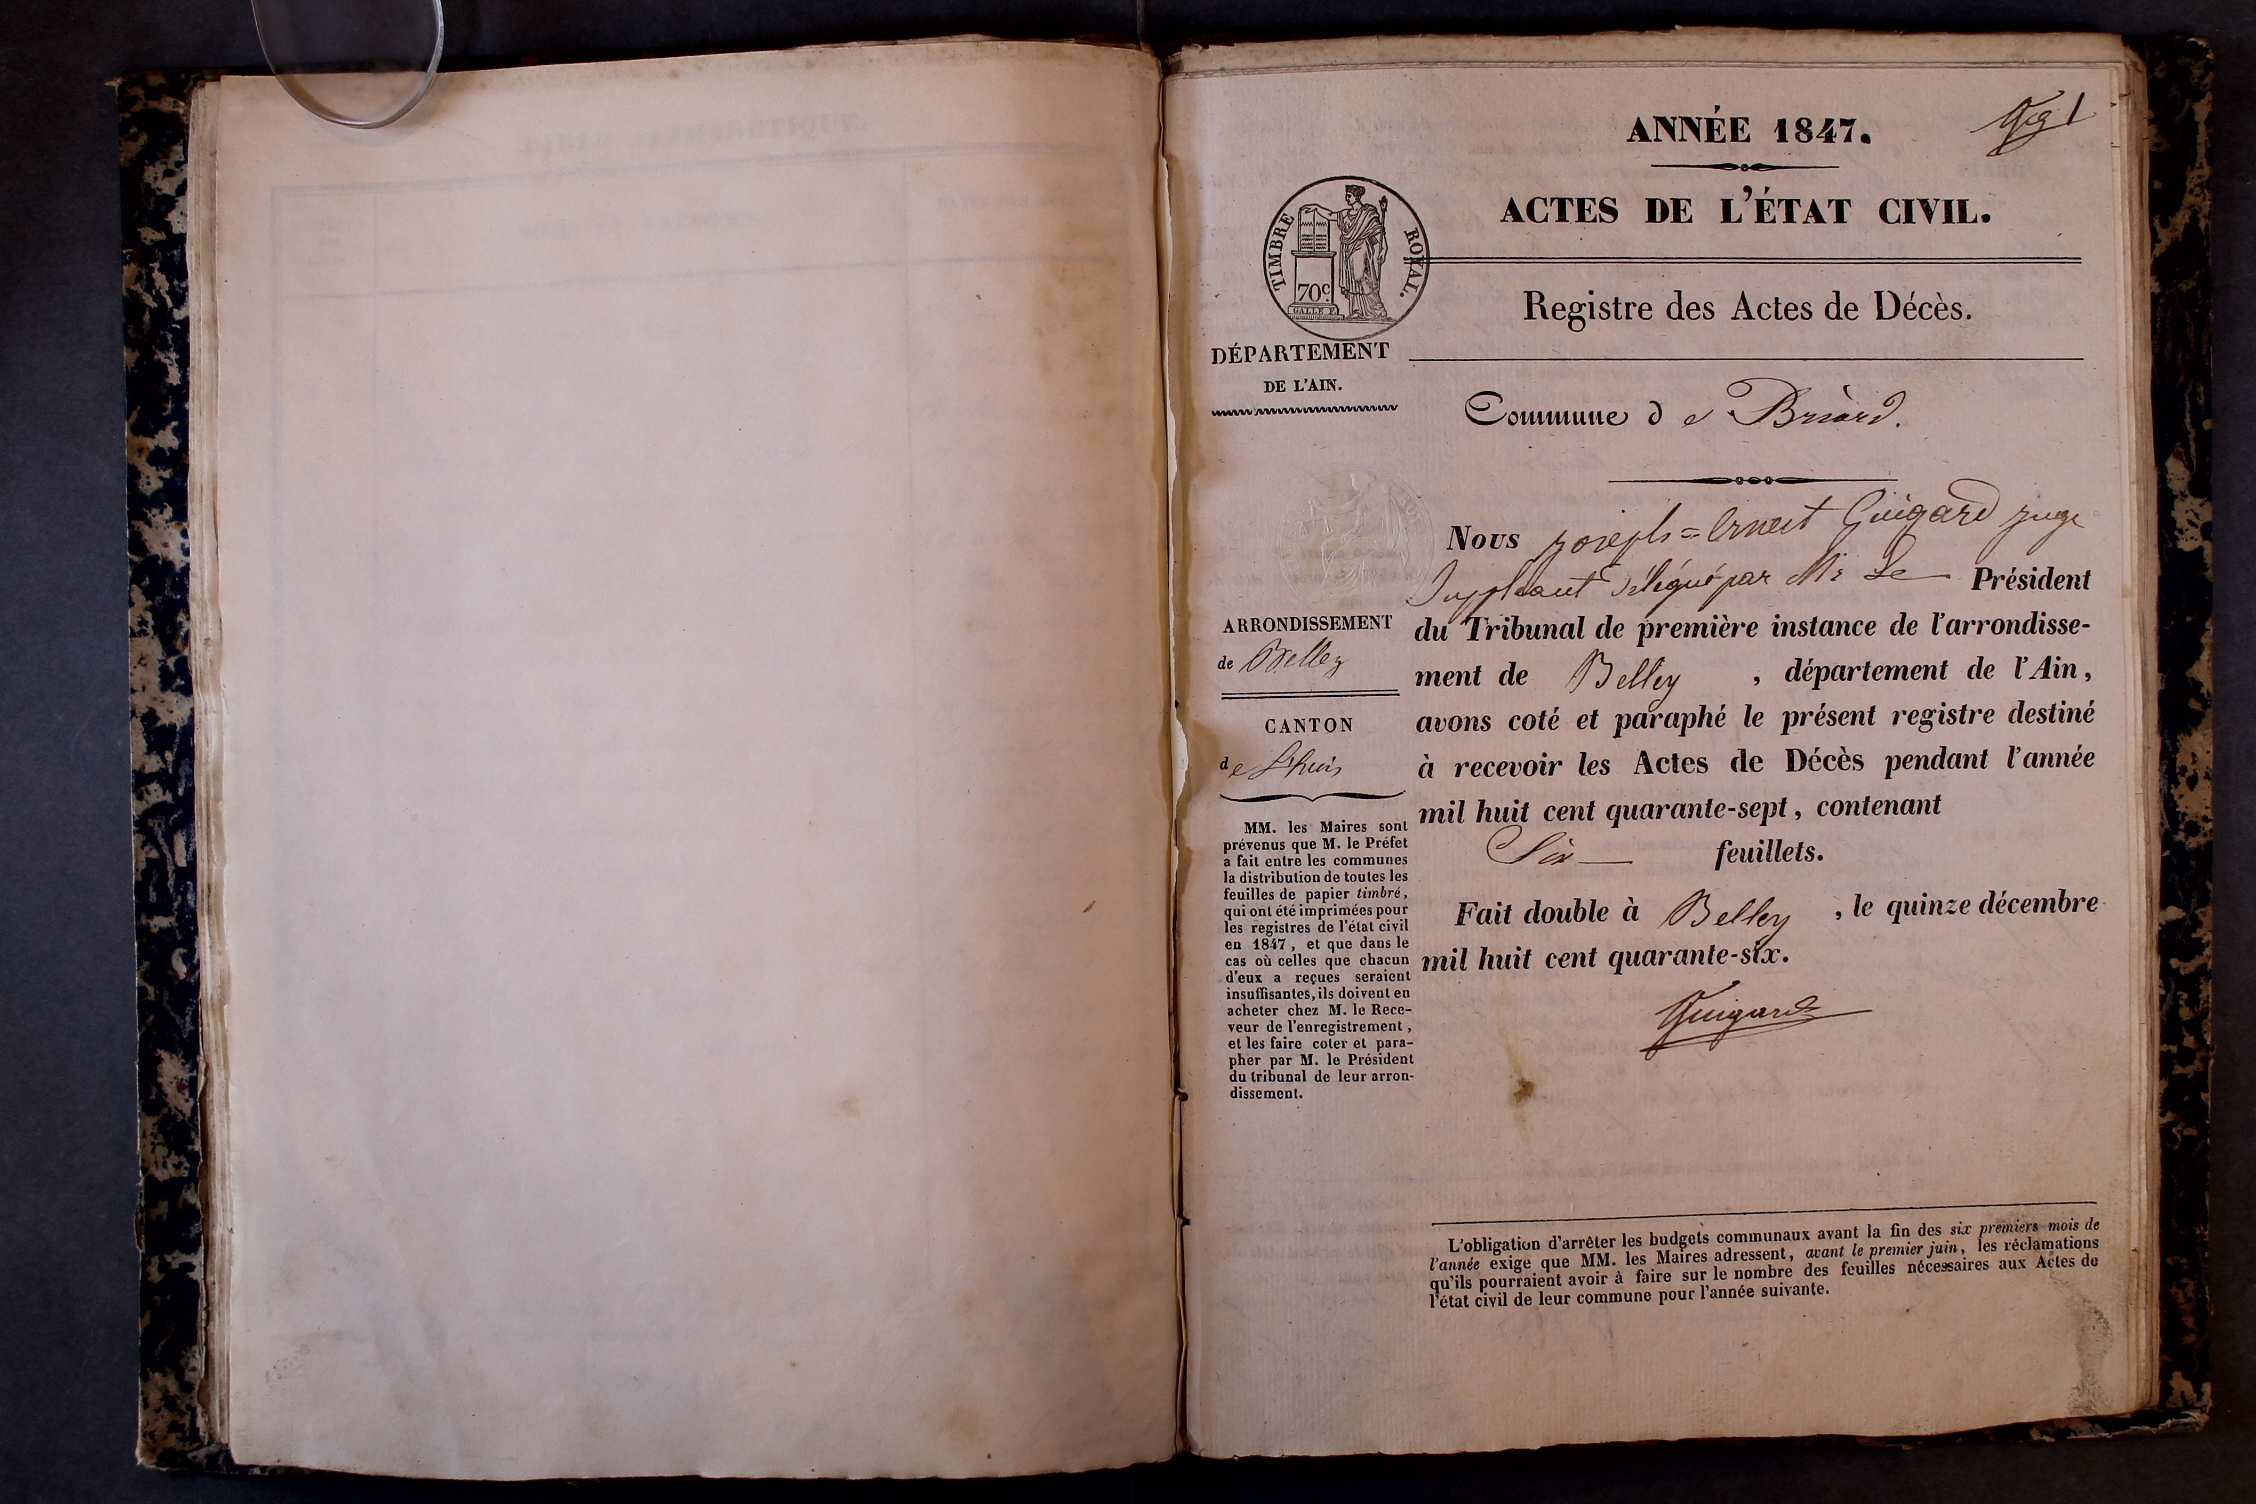 ANNÉE 1847.
1
ACTES DE L'ÉTAT CIVIL.
TIMBRE ROYAL.
70c.
GALLE F.
Registre des Actes de Décès.
DÉPARTEMENT
DE L'AIN.
Commune de Briord.
ARRONDISSEMENT
de Belley
CANTON
de Lhuis
MM. les Maires sont
prévenus que M. le Préfet
a fait entre les communes
la distribution de toutes les
feuilles de papier timbré,
qui ont été imprimées pour
les registres de l'état civil
en 1847, et que dans le
cas où celles que chacun
d'eux a reçues seraient
insuffisantes, ils doivent en
acheter chez M. le Rece-
veur de l'enregistrement,
et les faire coter et para-
pher par M. le Président
du tribunal de leur arron-
dissement.
Nous joseph=Ernest Guigard juge
Suppléant délégué par Mr Le Président
du Tribunal de première instance de l'arrondisse-
ment de Belley, département de l'Ain,
avons coté et paraphé le présent registre destiné
à recevoir les Actes de Décès pendant l'année
mil huit cent quarante-sept, contenant
Six feuillets.
Fait double à Belley, le quinze décembre
mil huit cent quarante-six.
Guigard
L'obligation d'arrêter les budgets communaux avant la fin des six premiers mois de
l'année exige que MM. les Maires adressent, avant le premier juin, les réclamations
qu'ils pourraient avoir à faire sur le nombre des feuilles nécessaires aux Actes de
l'état civil de leur commune pour l'année suivante.